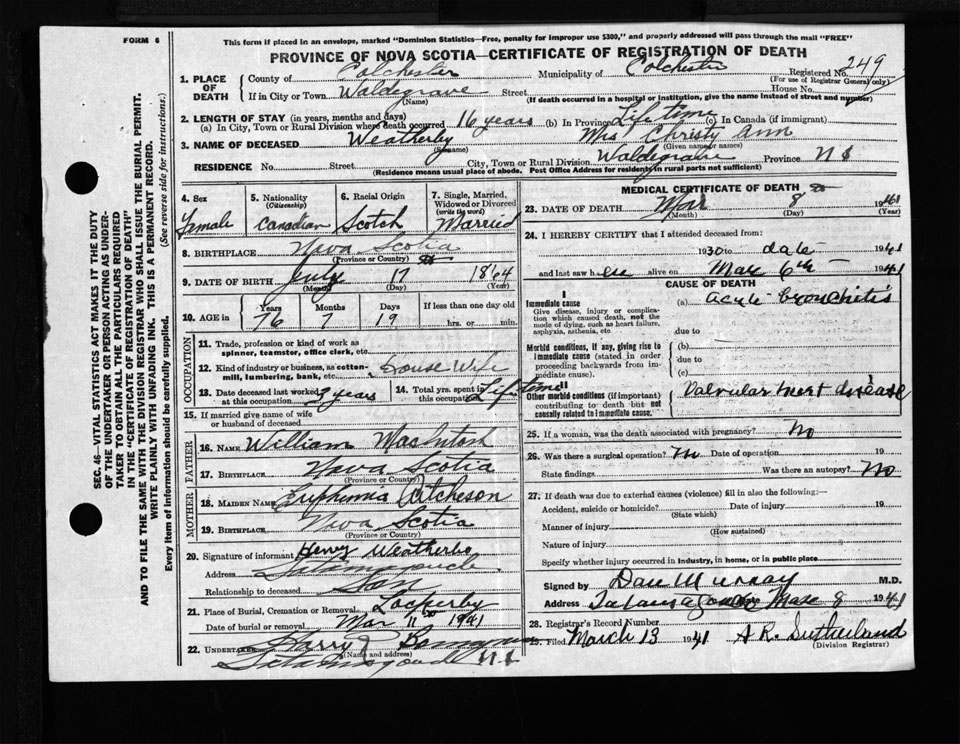 FORM 6
This form if placed in an envelope, marked "Dominion Statistics—Free, penalty for improper use $300," and properly addressed will pass through the mail "FREE"
PROVINCE OF NOVA SCOTIA—CERTIFICATE OF REGISTRATION OF DEATH
1. PLACE OF DEATH
County of Colchester Municipality of Colchester Registered No. 249
(For use of Registrar General only)
If in City or Town Waldegrave House No.
(Name) (If death occurred in a hospital or institution, give the name instead of street and number)
2. LENGTH OF STAY (in years, months and days)
(a) In City, Town or Rural Division where death occurred 16 years (b) In Province Life time (c) In Canada (if immigrant)
3. NAME OF DECEASED Weatherby Mrs Christy Ann
(Surname) (Given name or names)
RESIDENCE No. Street City, Town or Rural Division Waldegrave Province N S
(Residence means usual place of abode. Post Office Address for residents in rural parts not sufficient)
4. Sex Female
5. Nationality (Citizenship) Canadian
6. Racial Origin Scotch
7. Single, Married, Widowed or Divorced (write the word) Married
8. BIRTHPLACE Nova Scotia
(Province or Country)
9. DATE OF BIRTH July 17 1864
(Month) (Day) (Year)
10. AGE in Years Months Days If less than one day old
76 7 19 hrs. or min.
OCCUPATION
11. Trade, profession or kind of work as spinner, teamster, office clerk, etc.
12. Kind of industry or business, as cotton-mill, lumbering, bank, etc. House Wife
13. Date deceased last worked at this occupation years
14. Total yrs. spent in this occupation Life time
15. If married give name of wife or husband of deceased
FATHER
16. NAME William MacIntosh
17. BIRTHPLACE Nova Scotia
(Province or Country)
MOTHER
18. MAIDEN NAME Euphemia Aitcheson
19. BIRTHPLACE Nova Scotia
(Province or Country)
20. Signature of informant Henry Weatherbe
Address
Relationship to deceased Son
21. Place of Burial, Cremation or Removal Lockerby
Date of burial or removal Mar 11 1941
22. UNDERTAKER Harry
(Name and Address)
N S
MEDICAL CERTIFICATE OF DEATH
23. DATE OF DEATH Mar 8 1941
(Month) (Day) (Year)
24. I HEREBY CERTIFY that I attended deceased from:
1930 to date 1941
and last saw her alive on Mar 6th 1941
CAUSE OF DEATH
I
Immediate cause
Give disease, injury or complication which caused death, not the mode of dying, such as heart failure, asphyxia, asthenia, etc
(a) acute bronchitis
due to
Morbid conditions, if any, giving rise to immediate cause (stated in order proceeding backwards from immediate cause).
(b)
due to
(c)
II
Other morbid conditions (if important) contributing to death but not causally related to immediate cause.
Valvular heart disease
25. If a woman, was the death associated with pregnancy? No
26. Was there a surgical operation? no Date of operation 19
State findings Was there an autopsy? No
27. If death was due to external causes (violence) fill in also the following:—
Accident, suicide or homicide? Date of injury 19
(State which)
Manner of injury
(How sustained)
Nature of injury
Specify whether injury occurred in industry, in home, or in public place
Signed by Dan Murray M.D.
Address Tatamagouche Date Mar 8 1941
28. Registrar's Record Number
29. Filed March 13 1941 A R. Sutherland
(Division Registrar)
SEC. 46—VITAL STATISTICS ACT MAKES IT THE DUTY
OF THE UNDERTAKER OR PERSON ACTING AS UNDER-
TAKER TO OBTAIN ALL THE PARTICULARS REQUIRED
IN THE "CERTIFICATE OF REGISTRATION OF DEATH"
AND TO FILE THE SAME WITH THE DIVISION REGISTRAR WHO SHALL ISSUE THE BURIAL PERMIT.
WRITE PLAINLY WITH UNFADING INK. THIS IS A PERMANENT RECORD.
Every item of information should be carefully supplied. (See reverse side for instructions.)